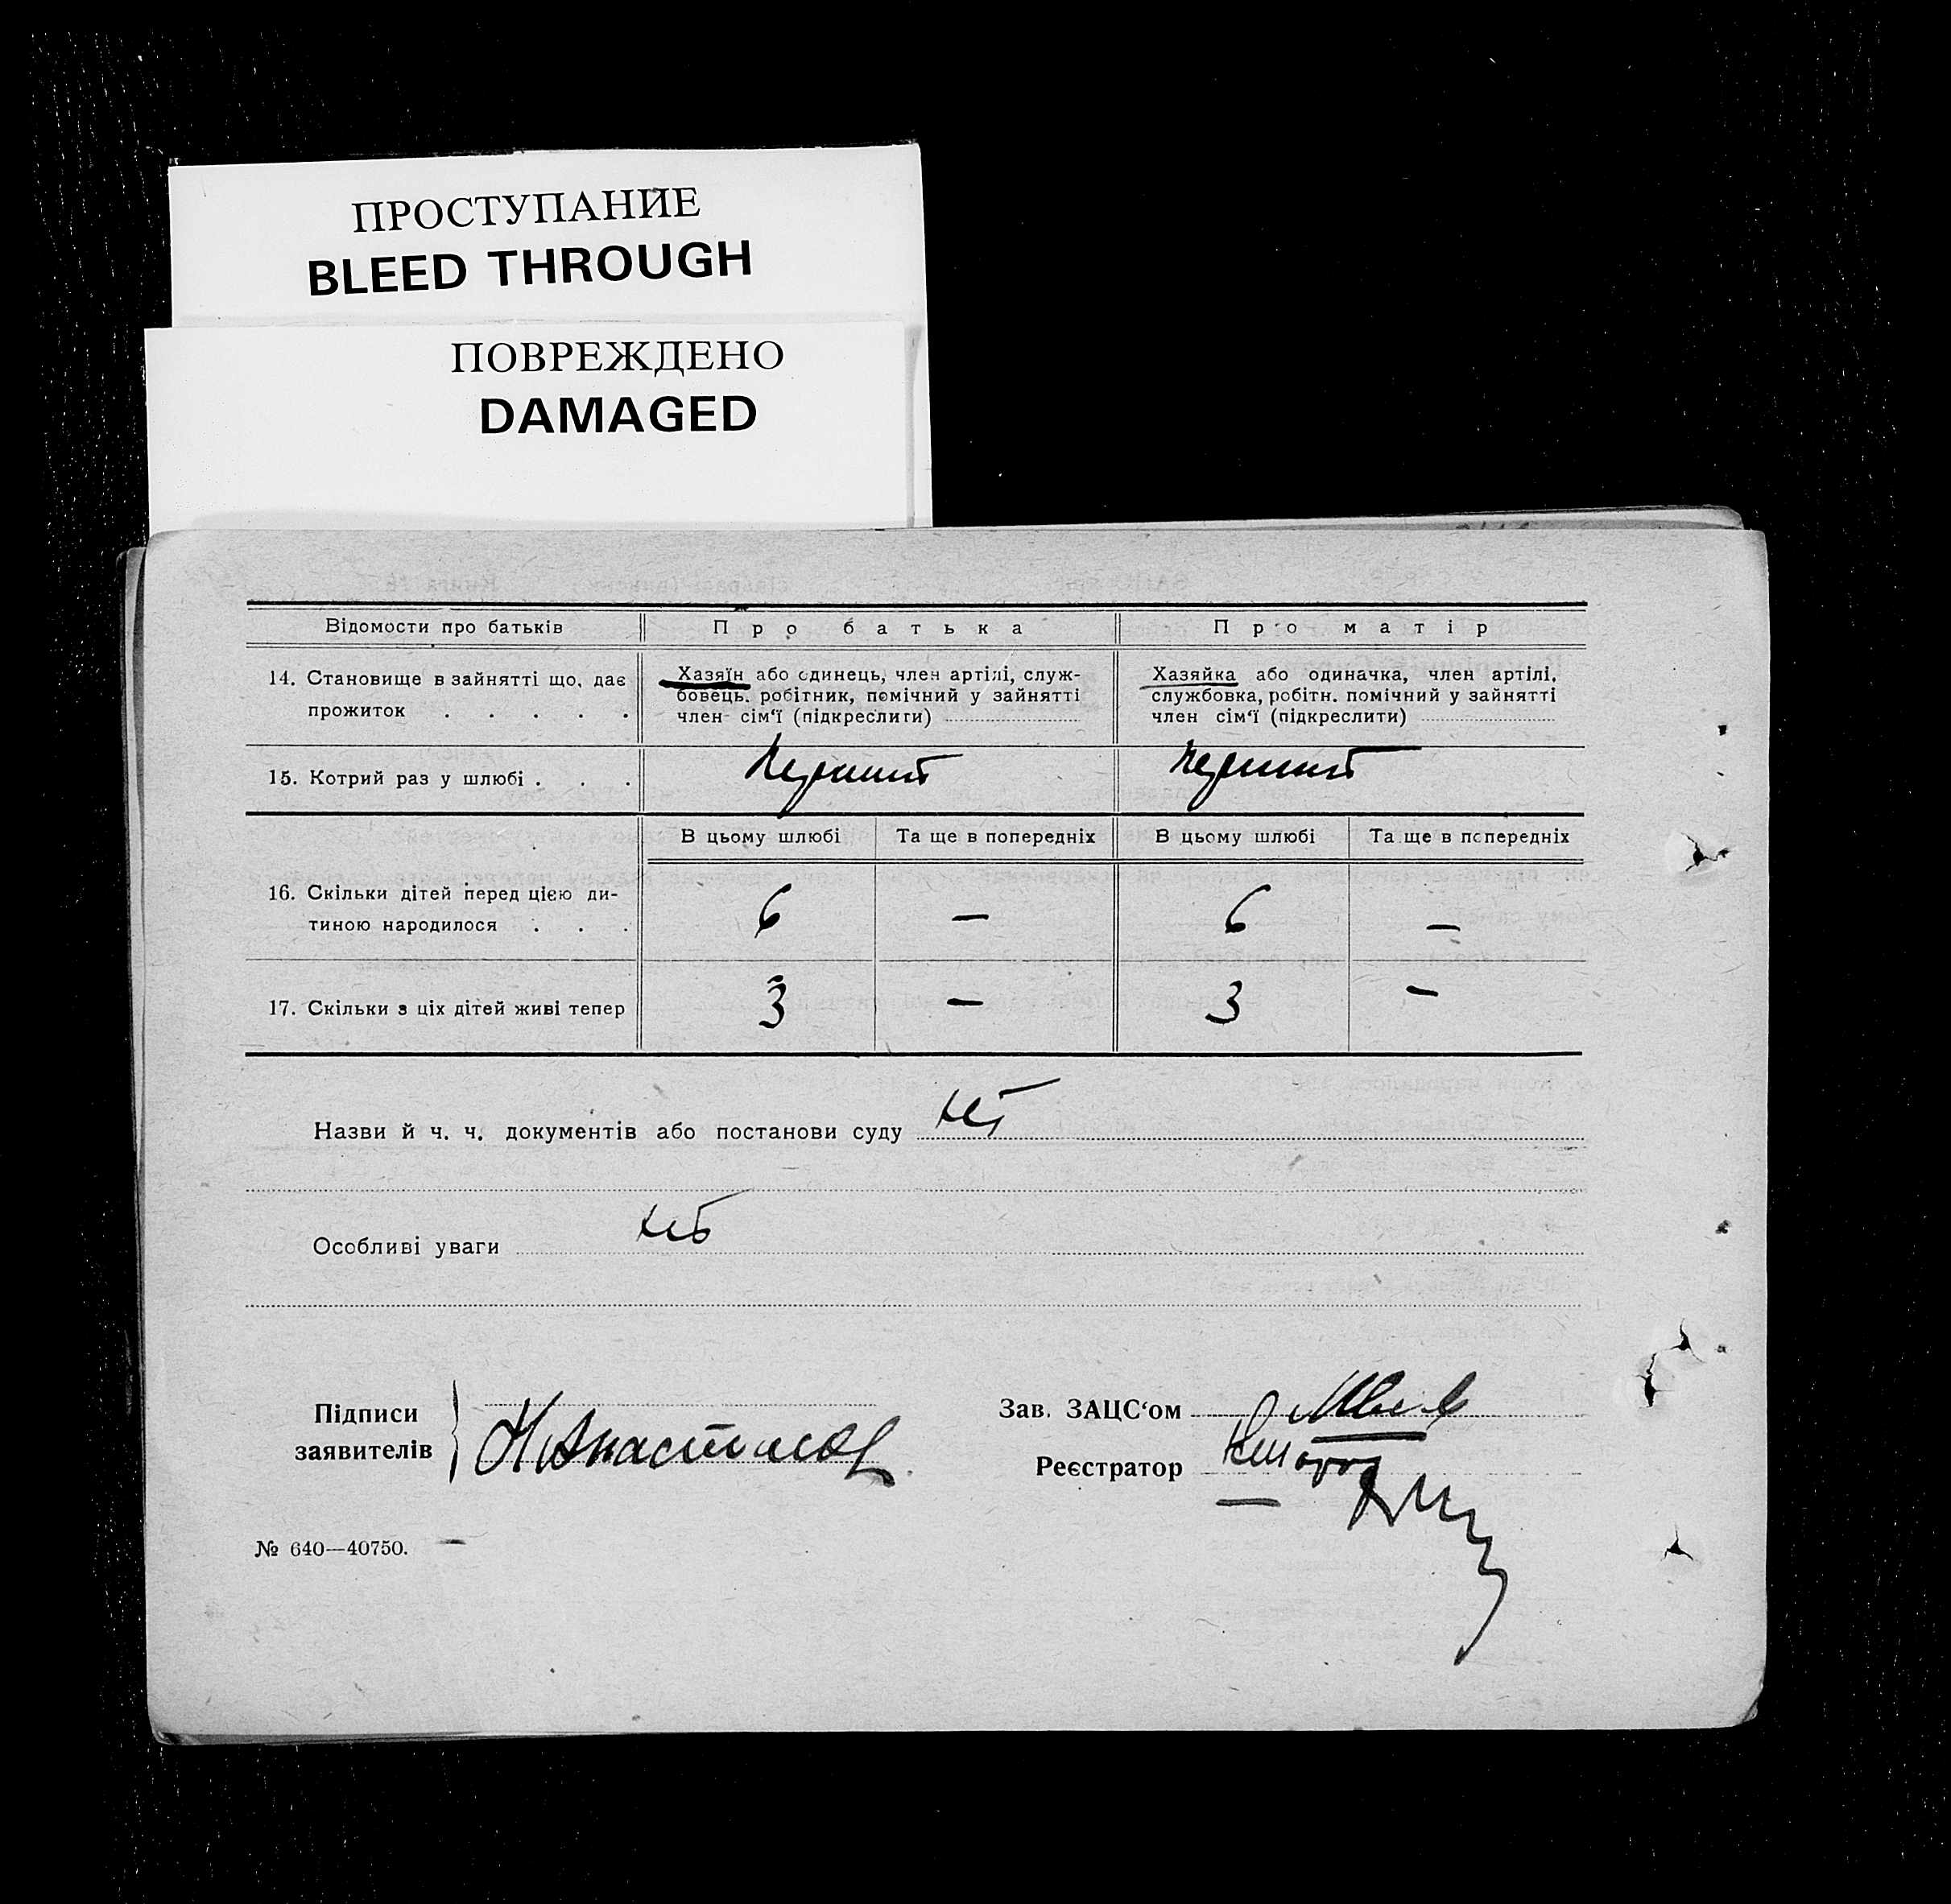 ПРОСТУПАНИЕ
BLEED THROUGH
ПОВРЕЖДЕНО
DAMAGED
Відомости про батьків
Про батька
Про матір
14. Становище в зайнятті що, дає
прожиток . . . . .
Хазяїн або одинець, член артілі, служ-
бовець, робітник, помічний у зайнятті
член сім‘ї (підкреслити)
Хазяйка або одиначка, член артілі,
службовка, робітн. помічний у зайнятті
член сім‘ї (підкреслити)
15. Котрий раз у шлюбі . . .
перший
перший
В цьому шлюбі
Та ще в попередніх
В цьому шлюбі
Та ще в попередніх
16. Скільки дітей перед цією ди-
тиною народилося . . .
6
—
6
—
17. Скільки з ціх дітей живі тепер
3
—
3
—
Назви й ч. ч. документів або постанови суду
Особливі уваги
Підписи
заявителів
Зав. ЗАЦС‘ом
Реєстратор
№ 640—40750.